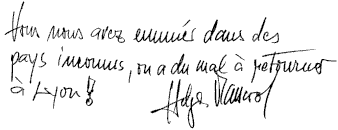 Vous nous avez emmenés dans des
pays inconnus, on a du mal à retourner
à Lyon !!